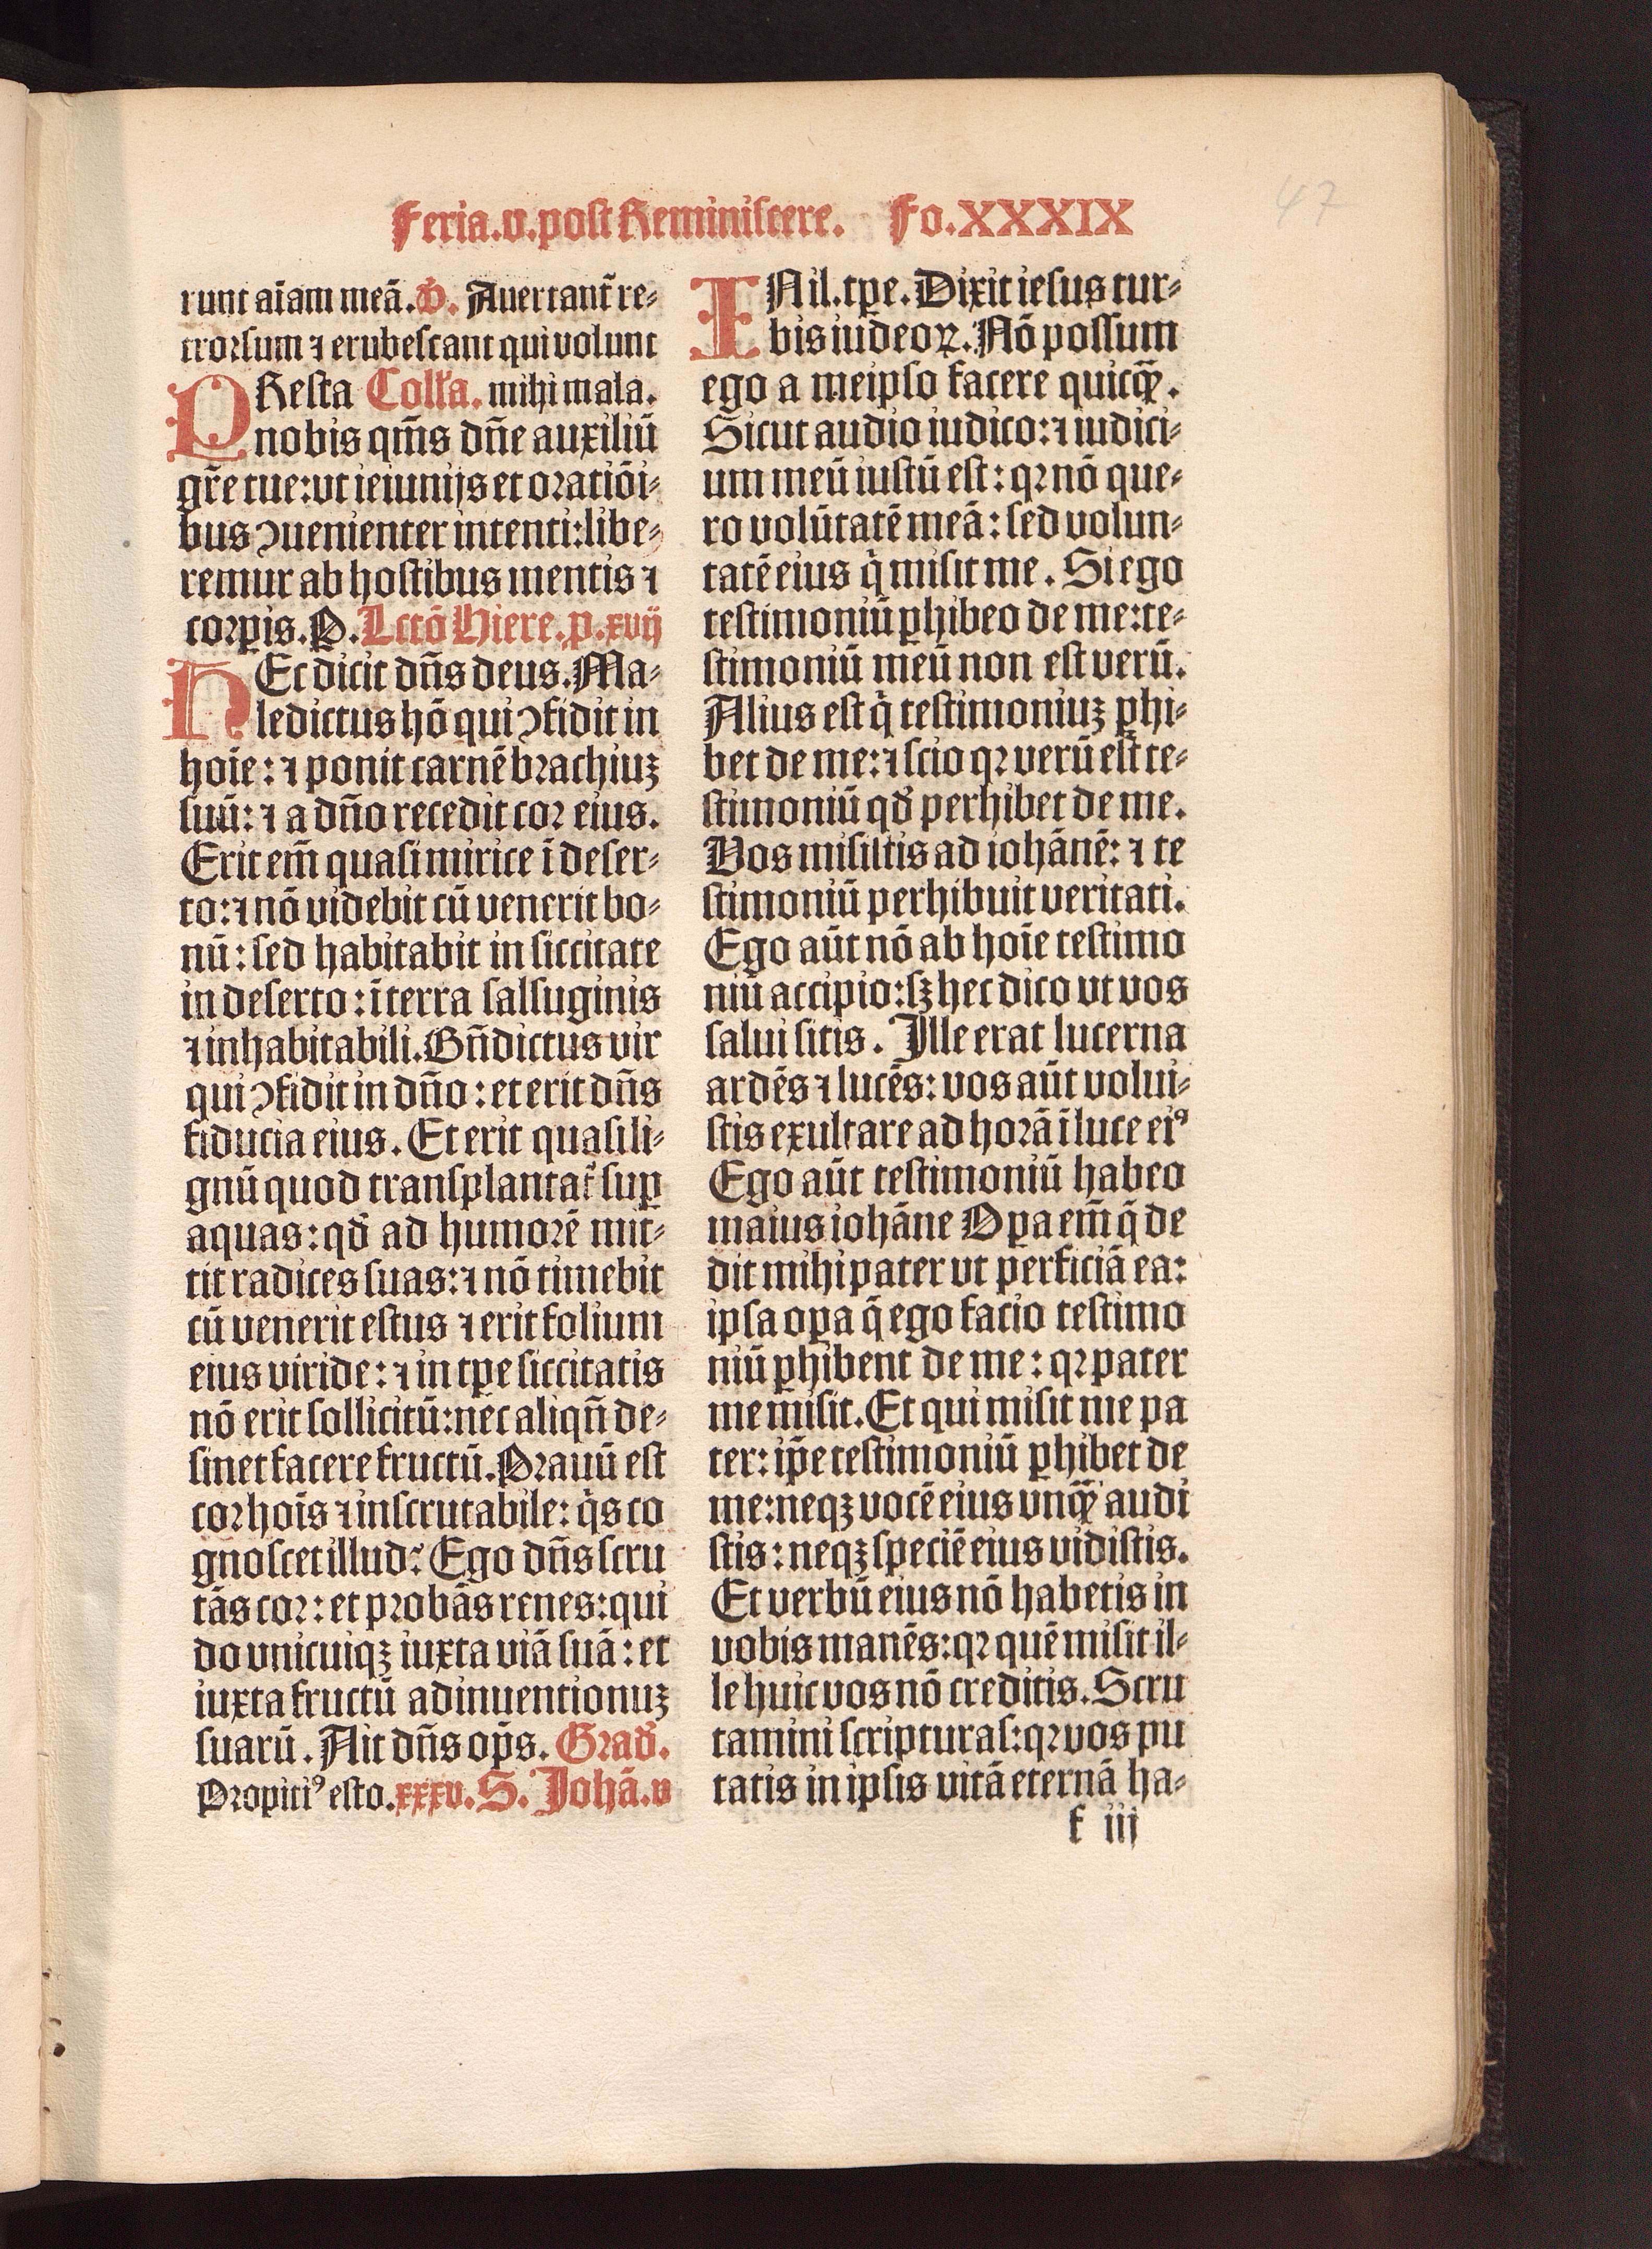 47
Feria.v.post Reminiscere. Fo.XXXIX
runt aīam meā. V. Auertant̃ re⸗
trorsum ⁊ erubescant qui volunt
PResta Coll̃a. mihi mala.
nobis qm̃s dñe auxiliū
gr̃e tue:vt ieiunijs et oratiōi⸗
bus ꝯuenienter intenti:libe⸗
remur ab hostibus mentis ⁊
corꝑis.P. Lctō Hiere.p.xvij
HEc dicit dñs deus.Ma⸗
ledictus hō qui ꝯfidit in
hoīe: ⁊ ponit carnē brachiuꝫ
suū: ⁊ a dño recedit cor eius.
Erit em̃ quasi mirice ī deser⸗
to:⁊ nō videbit cū venerit bo⸗
nū: sed habitabit in siccitate
in deserto: ī terra salsuginis
⁊ inhabitabili.Bñdictus vir
qui ꝯfidit in dño: et erit dñs
fiducia eius. Et erit quasi li⸗
gnū quod transplantat̃ suꝑ
aquas: qđ ad humorē mit⸗
tit radices suas:⁊ nō timebit
cū venerit estus ⁊ erit folium
eius viride: ⁊ in tꝑe siccitatis
nō erit sollicitū:nec aliqñ de⸗
sinet facere fructū.Prauū est
cor hoīs ⁊ inscrutabile: q̇s co
gnoscet illud? Ego dñs scru
tās cor: et probās renes:qui
do vnicuiqꝫ iuxta viā suā: et
iuxta fructū adinuentionuꝫ
suarū. Ait dñs op̄s. Građ.
Propiciꝰ esto.xxxv. S. Johā.v
INil.tꝑe. Dixit iesus tur⸗
bis iudeoꝝ. Nō possum
ego a meipso facere quicꝙ̃.
Sicut audio iudico:⁊ iudici⸗
um meū iustū est: qꝛ nō que⸗
ro volūtatē meā: sed volun⸗
tatē eius q̇ misit me. Si ego
testimoniū ꝑhibeo de me:te⸗
stimoniū meū non est verū.
Alius est q̇ testimoniuꝫ ꝑhi⸗
bet de me: ⁊ scio qꝛ verū est te⸗
stimoniū qđ perhibet de me.
Vos misistis ad iohānē: ⁊ te
stimoniū perhibuit veritati.
Ego aūt nō ab hoīe testimo
niū accipio:sꝫ hec dico vt vos
salui sitis. Ille erat lucerna
ardēs ⁊ lucēs: vos aūt volui⸗
stis exultare ad horā ī luce eiꝰ
Ego aūt testimoniū habeo
maius iohāne Oꝑa em̃ q̄ de
dit mihi pater vt perficiā ea:
ipsa oꝑa q̄ ego facio testimo
niū ꝑhibent de me: qꝛ pater
me misit. Et qui misit me pa
ter: ip̄e testimoniū ꝑhibet de
me:neqꝫ vocē eius vnꝙ̃ audi
stis: neqꝫ speciē eius vidistis.
Et verbū eius nō habetis in
vobis manēs:qꝛ quē misit il⸗
le huic vos nō creditis. Scru
tamini scripturas:qꝛ vos pu
tatis in ipsis vitā eternā ha⸗
f iij